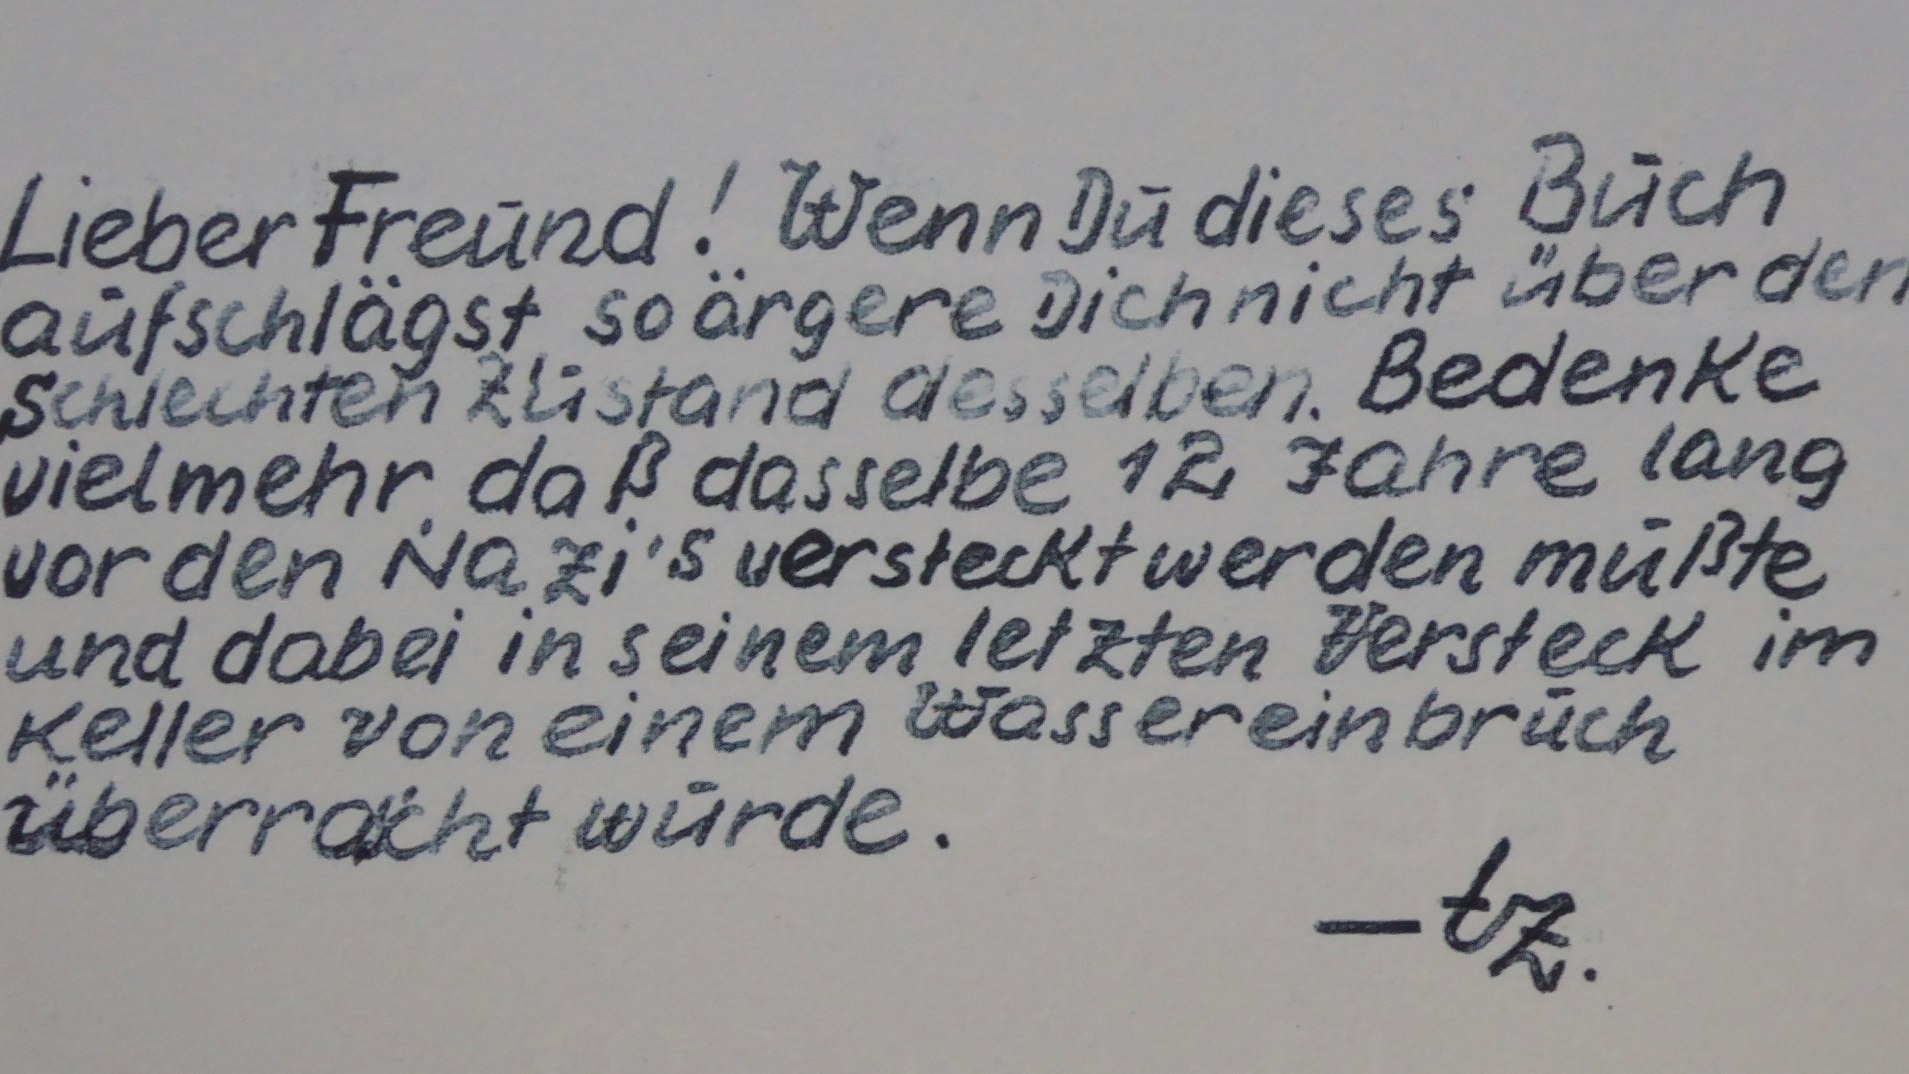 Lieber Freund! Wenn Du dieses Buch
aufschlägst so ärgere Dich nicht über den
schlechten Zustand desselben. Bedenke
vielmehr, daß dasselbe 12 Jahre lang
vor den Nazi's versteckt werden mußte
und dabei in seinem letzten Versteck im
Keller von einem Wassereinbruch
überracht wurde.
– tz.